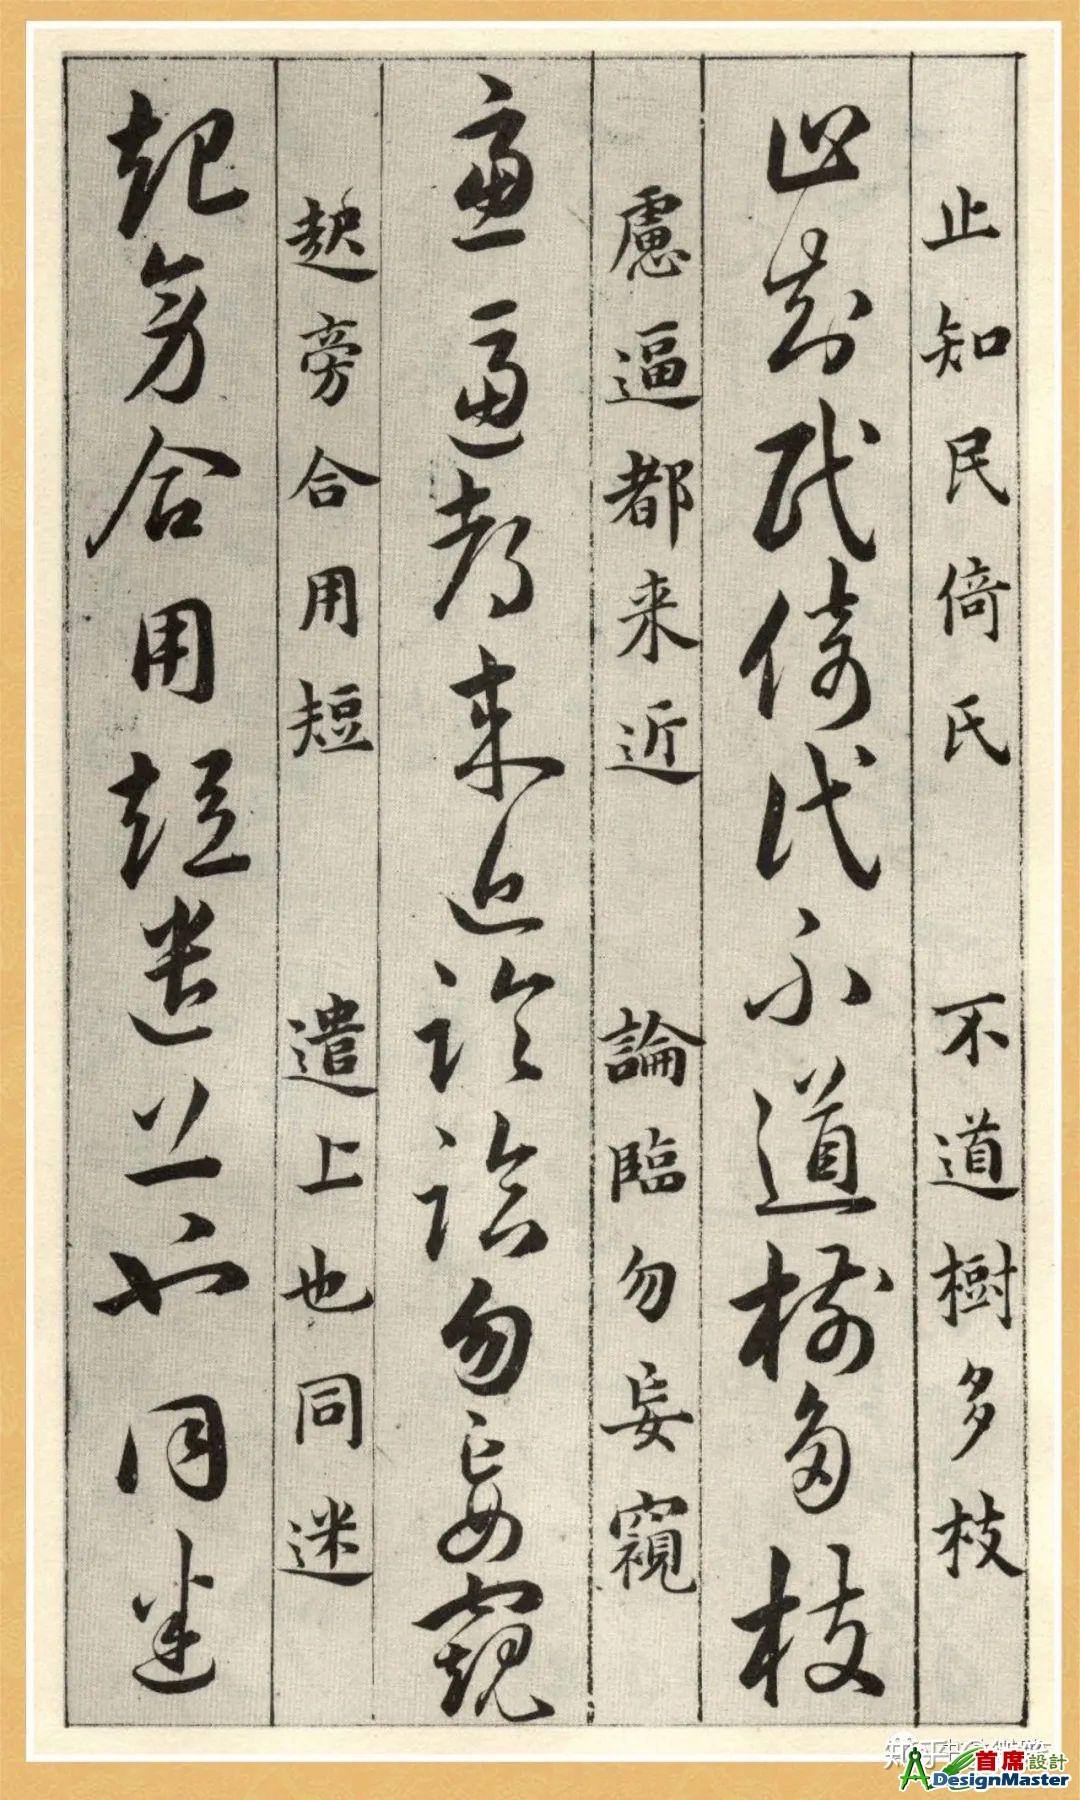 止知民倚氏 不道樹多枝
止知民倚氏不道樹多枝
慮逼都来近 論臨勿妄窺
慮逼都来近論臨勿妄窺
起旁合用短 遣上也同迷
起旁合用短遣上也同迷
首席設計
DesignMaster